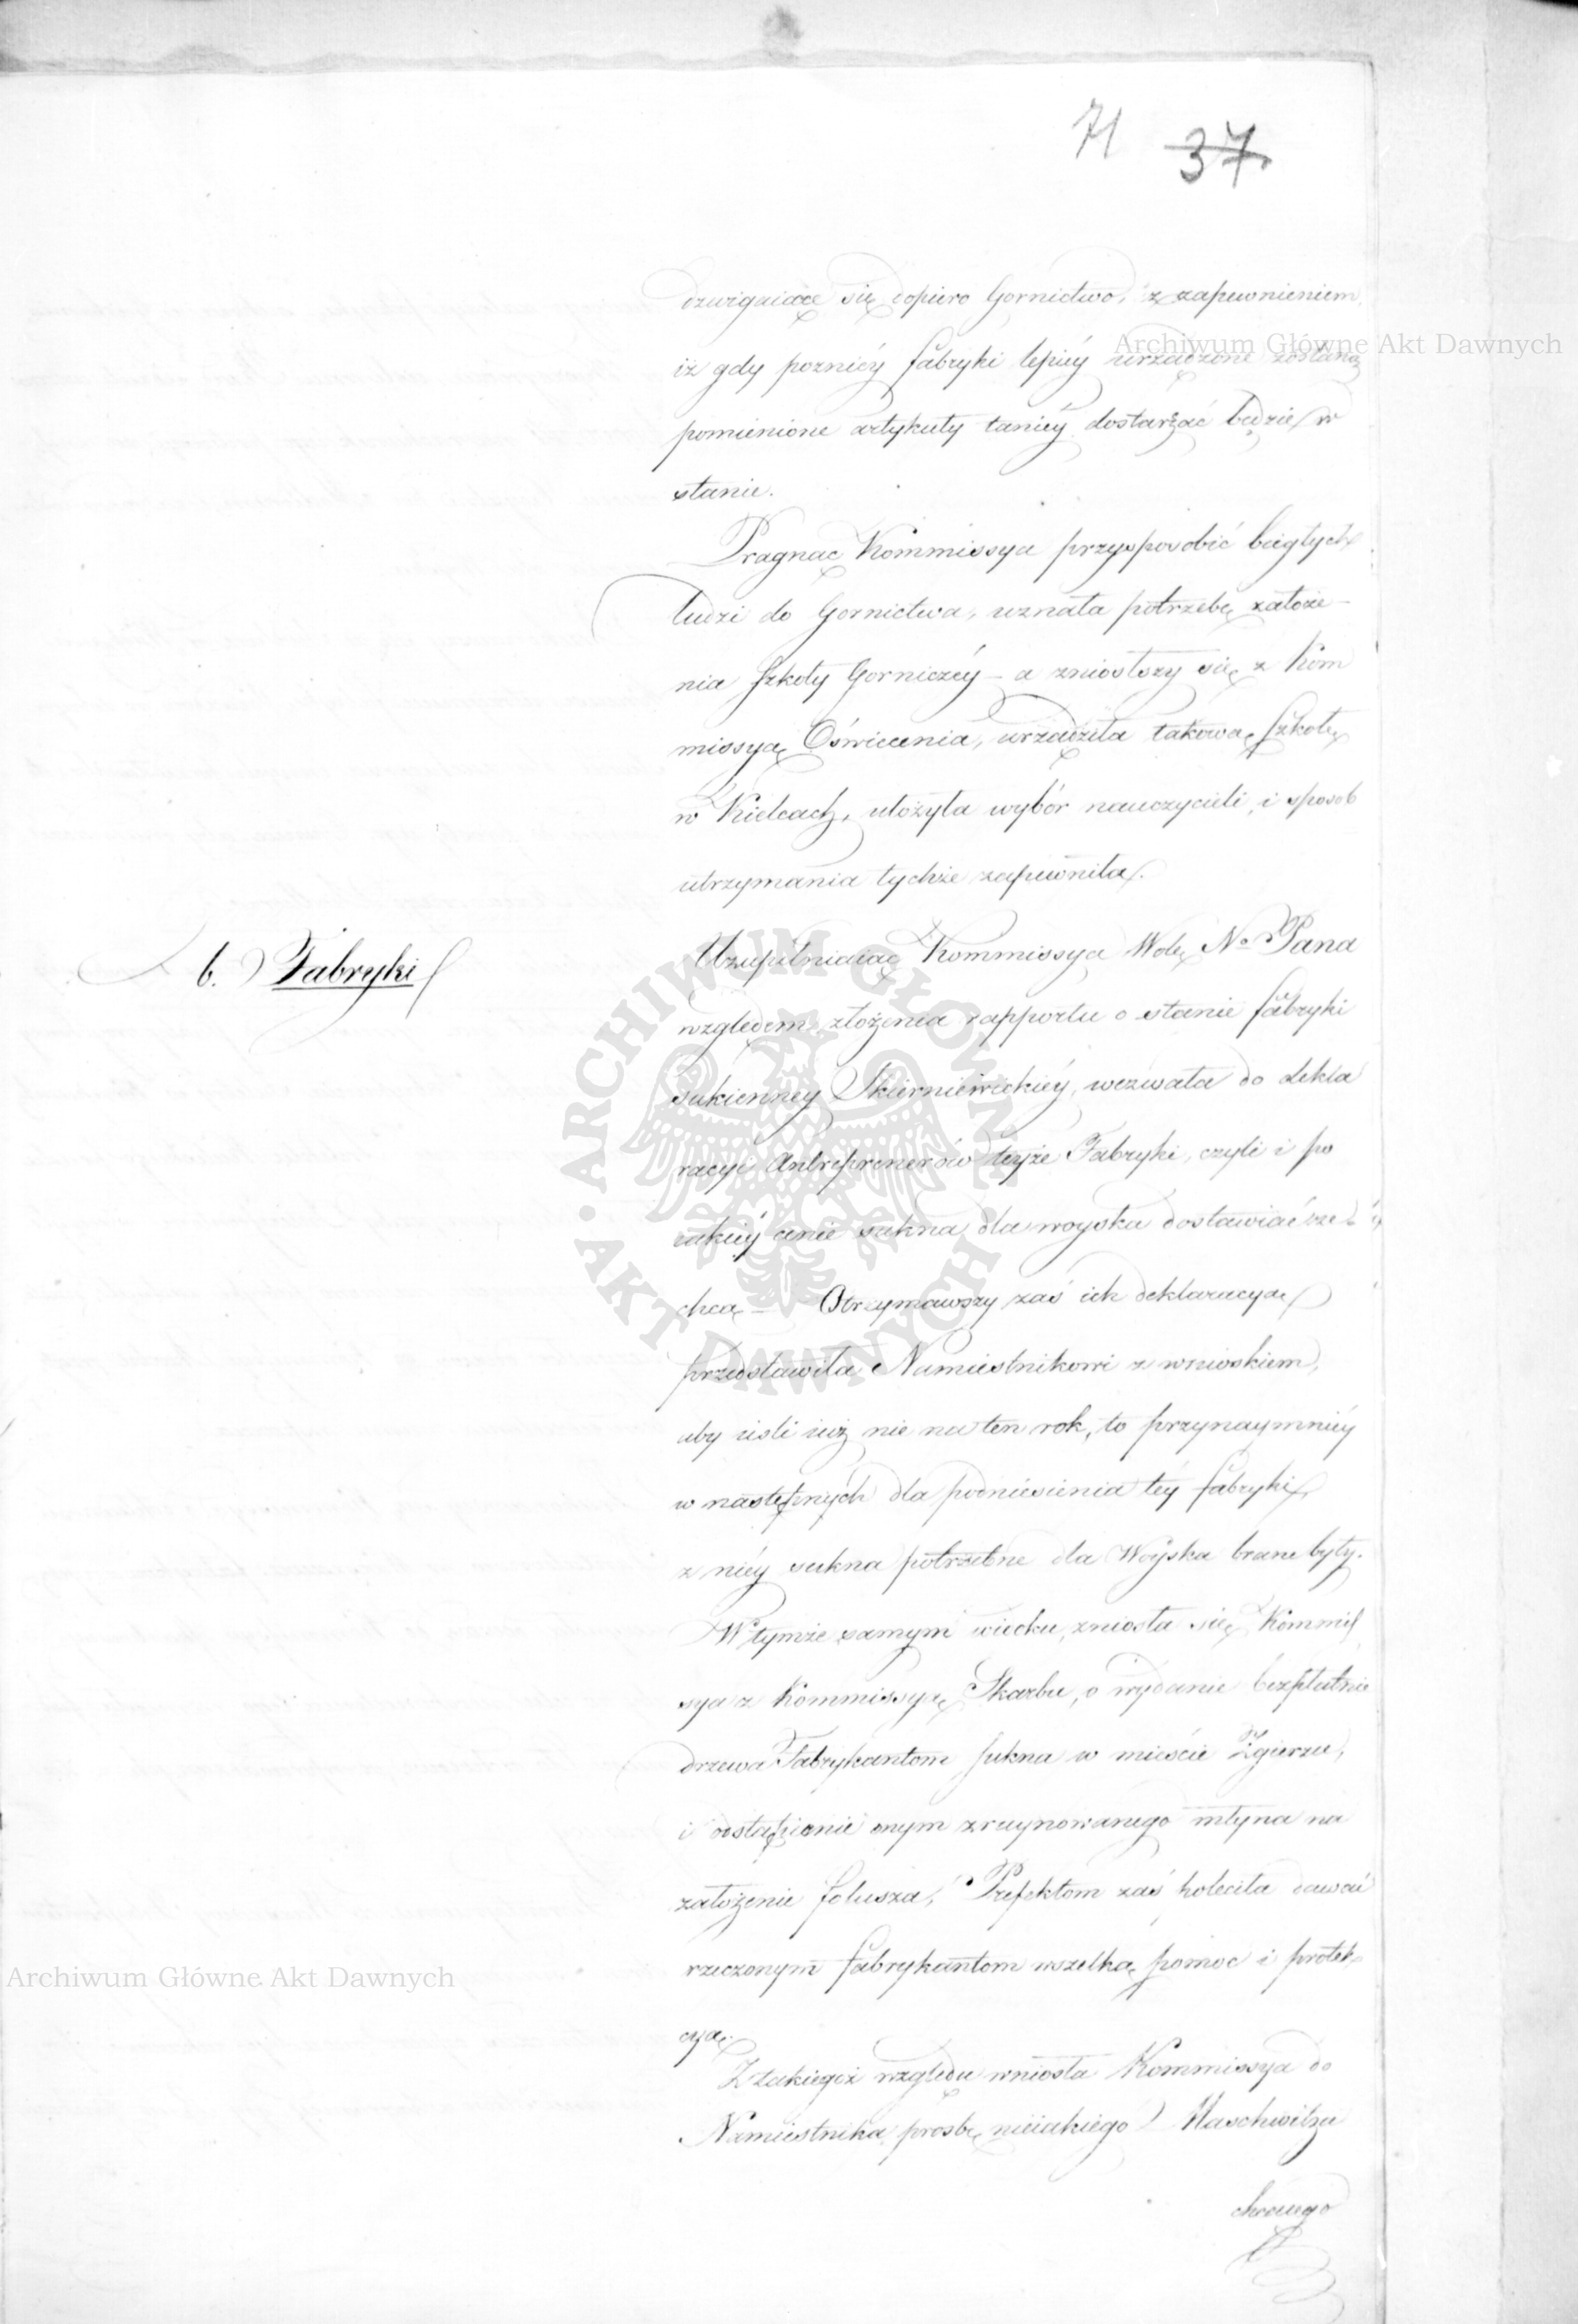 71 37
dzwigaiące się dopiero Gornictwo, z zapewnieniem
iż gdy poznieý fabryki lepieý urządzone zostaną
pomienione artykuły tanieý dostarzać będzie w
stanie.
Pragnąc Kommissya przysposobić biegłych
ludzi do Gornictwa, uznała potrzebę założe-
nia Szkoły Gorniczéy – a zniosłszy się z Kom
missyą Oświecenia, urządziła takową Szkołę
w Kielcach, ułożyła wybór nauczycieli, i sposob
utrzymania tychże zapewniła.
b. Fabryki
Uzupełniaiąc Kommissya Wolę No Pana
względem złożenia rapportu o stanie fabryki
sukienney Skierniewickiéy, wezwała do dekla
racyi Antreprenerów teyże Fabryki, czyli i po
iakiéy cenie sukna dla woyska dostawiać
chcą – Otrzymawszy zaś ich deklaracyą
przedstawiła Namiestnikowi z wnioskiem,
aby ieśli iuż nie na ten rok, to przynaymniéy
w następnych dla podniesienia téy fabryki
z niéy sukna potrzebne dla Woyska brane były.
W tymże samym wiecku, zniosła się Kommis
sya z Kommissyą Skarbu, o wydanie bezpłatnie
drzewa Fabrykantom Sukna w mieście Zgierzu,
i odstąpienie onym zruynowanego młyna na
założenie folusza, Prefektom zaś poleciła dawać
rzeczonym fabrykantom wszelką pomoc i protek
cyą.
Z takiegoż względu wniosła Kommissya do
Namiestnika prosbę nieiakiego Waschwitza
chcącego
Archiwum Główne Akt Dawnych
ARCHIWUM GŁÓWNE AKT DAWNYCH
Archiwum Główne Akt Dawnych